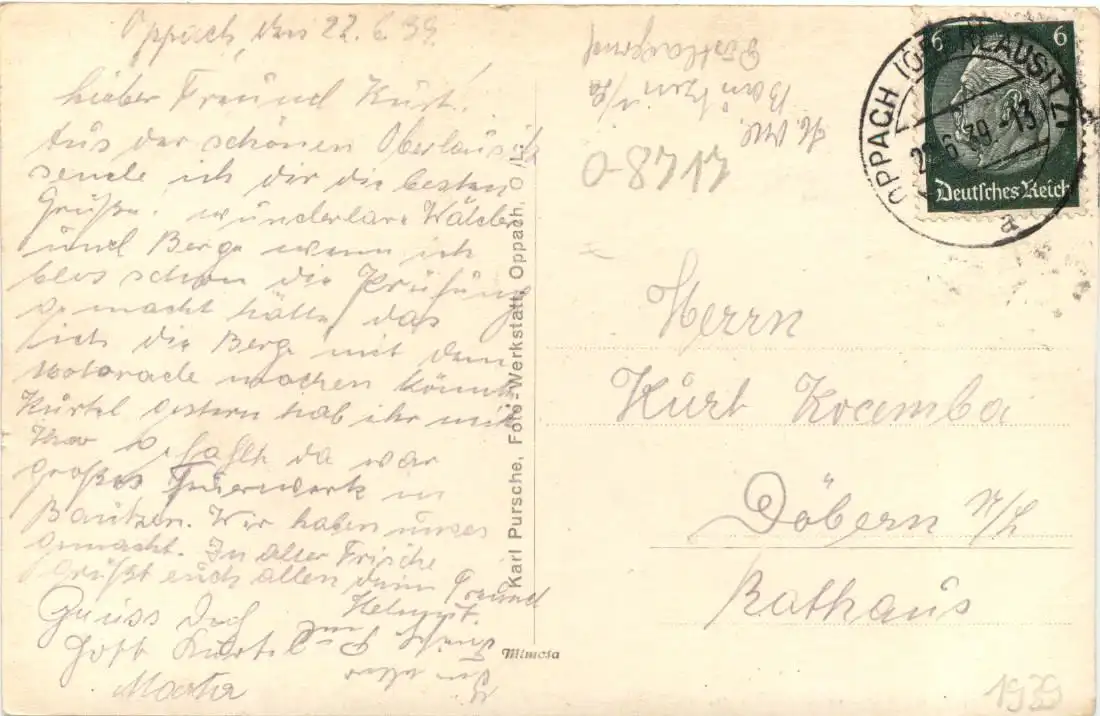 Oppach, den 22.6.39.
Lieber Freund Kurt!
Aus der schönen Oberlausitz
sende ich dir die besten
Grüße. wunderbare Wälder
und Berge wenn ich
blos schon die Prüfung
gemacht hätte, das
ich die Berge mit dem
Motorade machen könnte
Kurtel gestern hab ihr mir
gefahlt da war
großes Feuerwerk in
Bautzen. Wir haben unses
gemacht. In alter Frische
Grüßt euch allen dein Freund
Helmut.
Grüss Dich
Gott Kurtel
Karl Pursche, Foto-Werkstatt, Oppach, O./L.
Mimosa
Bautzen
0-8717
OPPACH (OBERLAUSITZ)
6.39.-13
a
6 6
Deutsches Reich
Herrn
Kurt Kocemba
Döbern N/L
Rathaus
1939